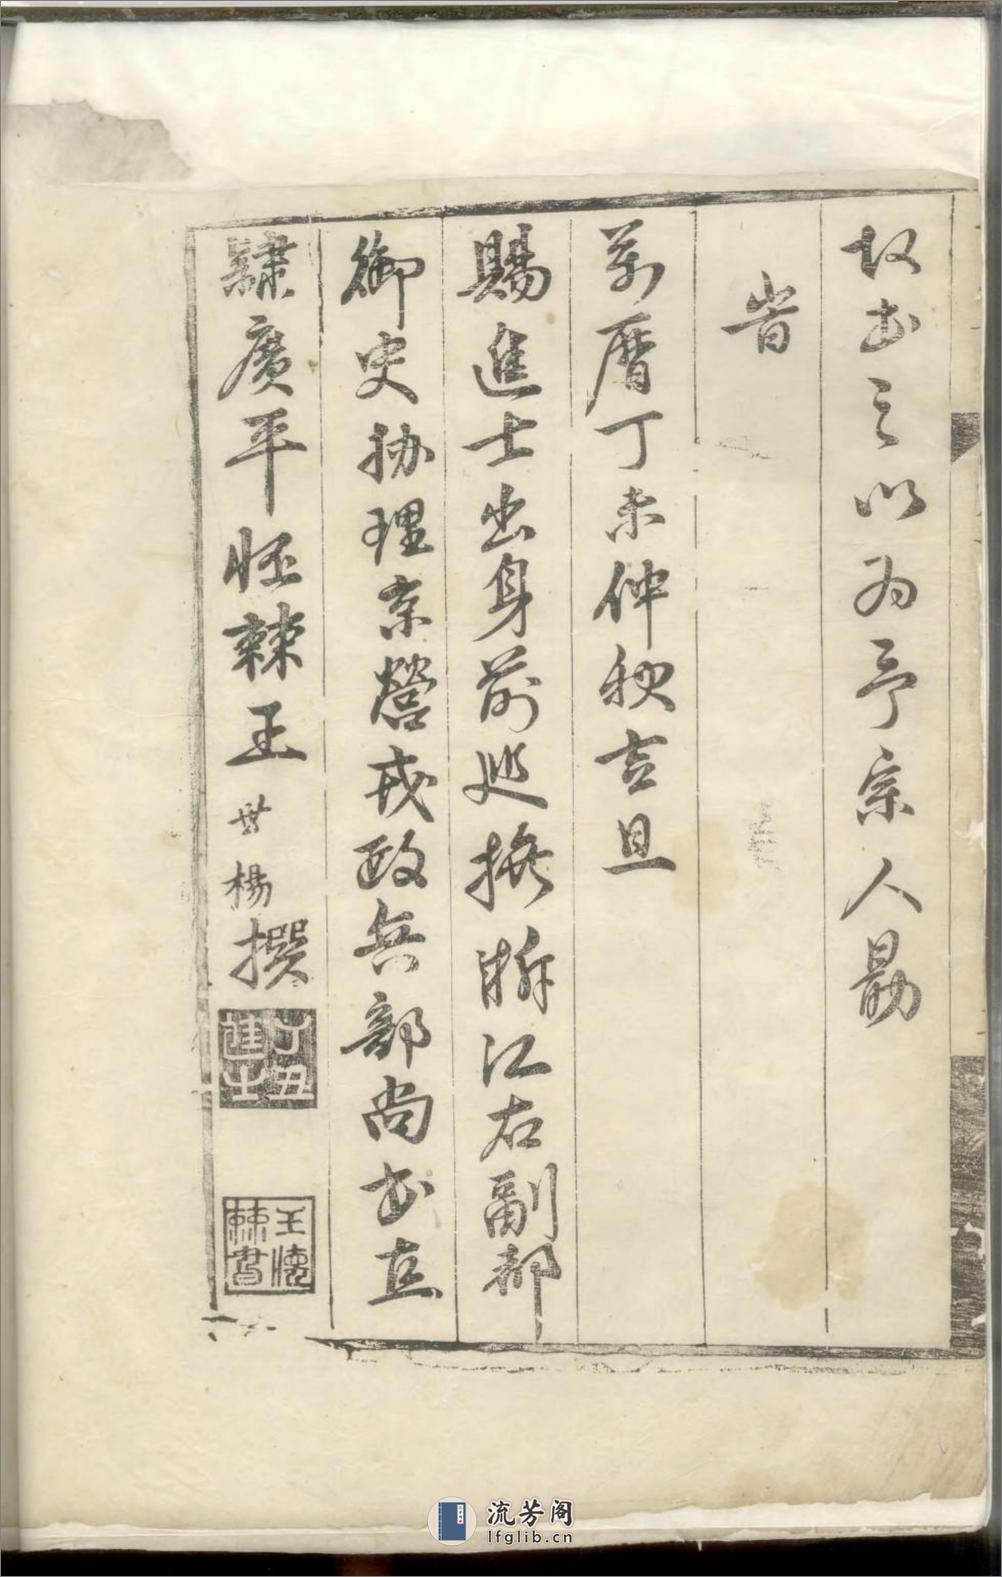 故書之以為予宗人勗
旹
萬曆丁未仲秋吉旦
賜進士出身前巡撫浙江右副都
御史協理京營戎政兵部尚書直
隸廣平懷棘王世楊撰
丁丑進士
王懷棘書
流芳阁
lfglib.cn